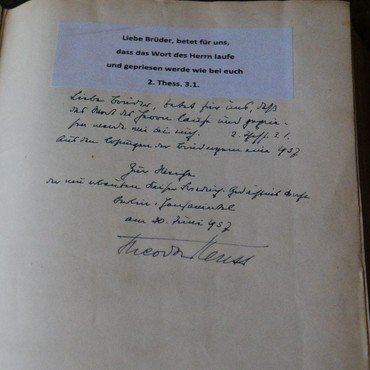 Liebe Brüder, betet für uns,
dass das Wort des Herrn laufe
und gepriesen werde wie bei euch
2. Thess. 3.1.
Liebe Brüder, betet für uns, daß
das Wort des Herrn laufe und geprie-
sen werde wie bei euch. 2. Thess. 3.1.
Aus den Losungen der Brüdergemeine 1957
Zur Weihe
der neu erbauten Kaiser Friedrich-Gedächtniskirche
Berlin-Hansaviertel
am 30. Juni 1957
Theodor Heuss